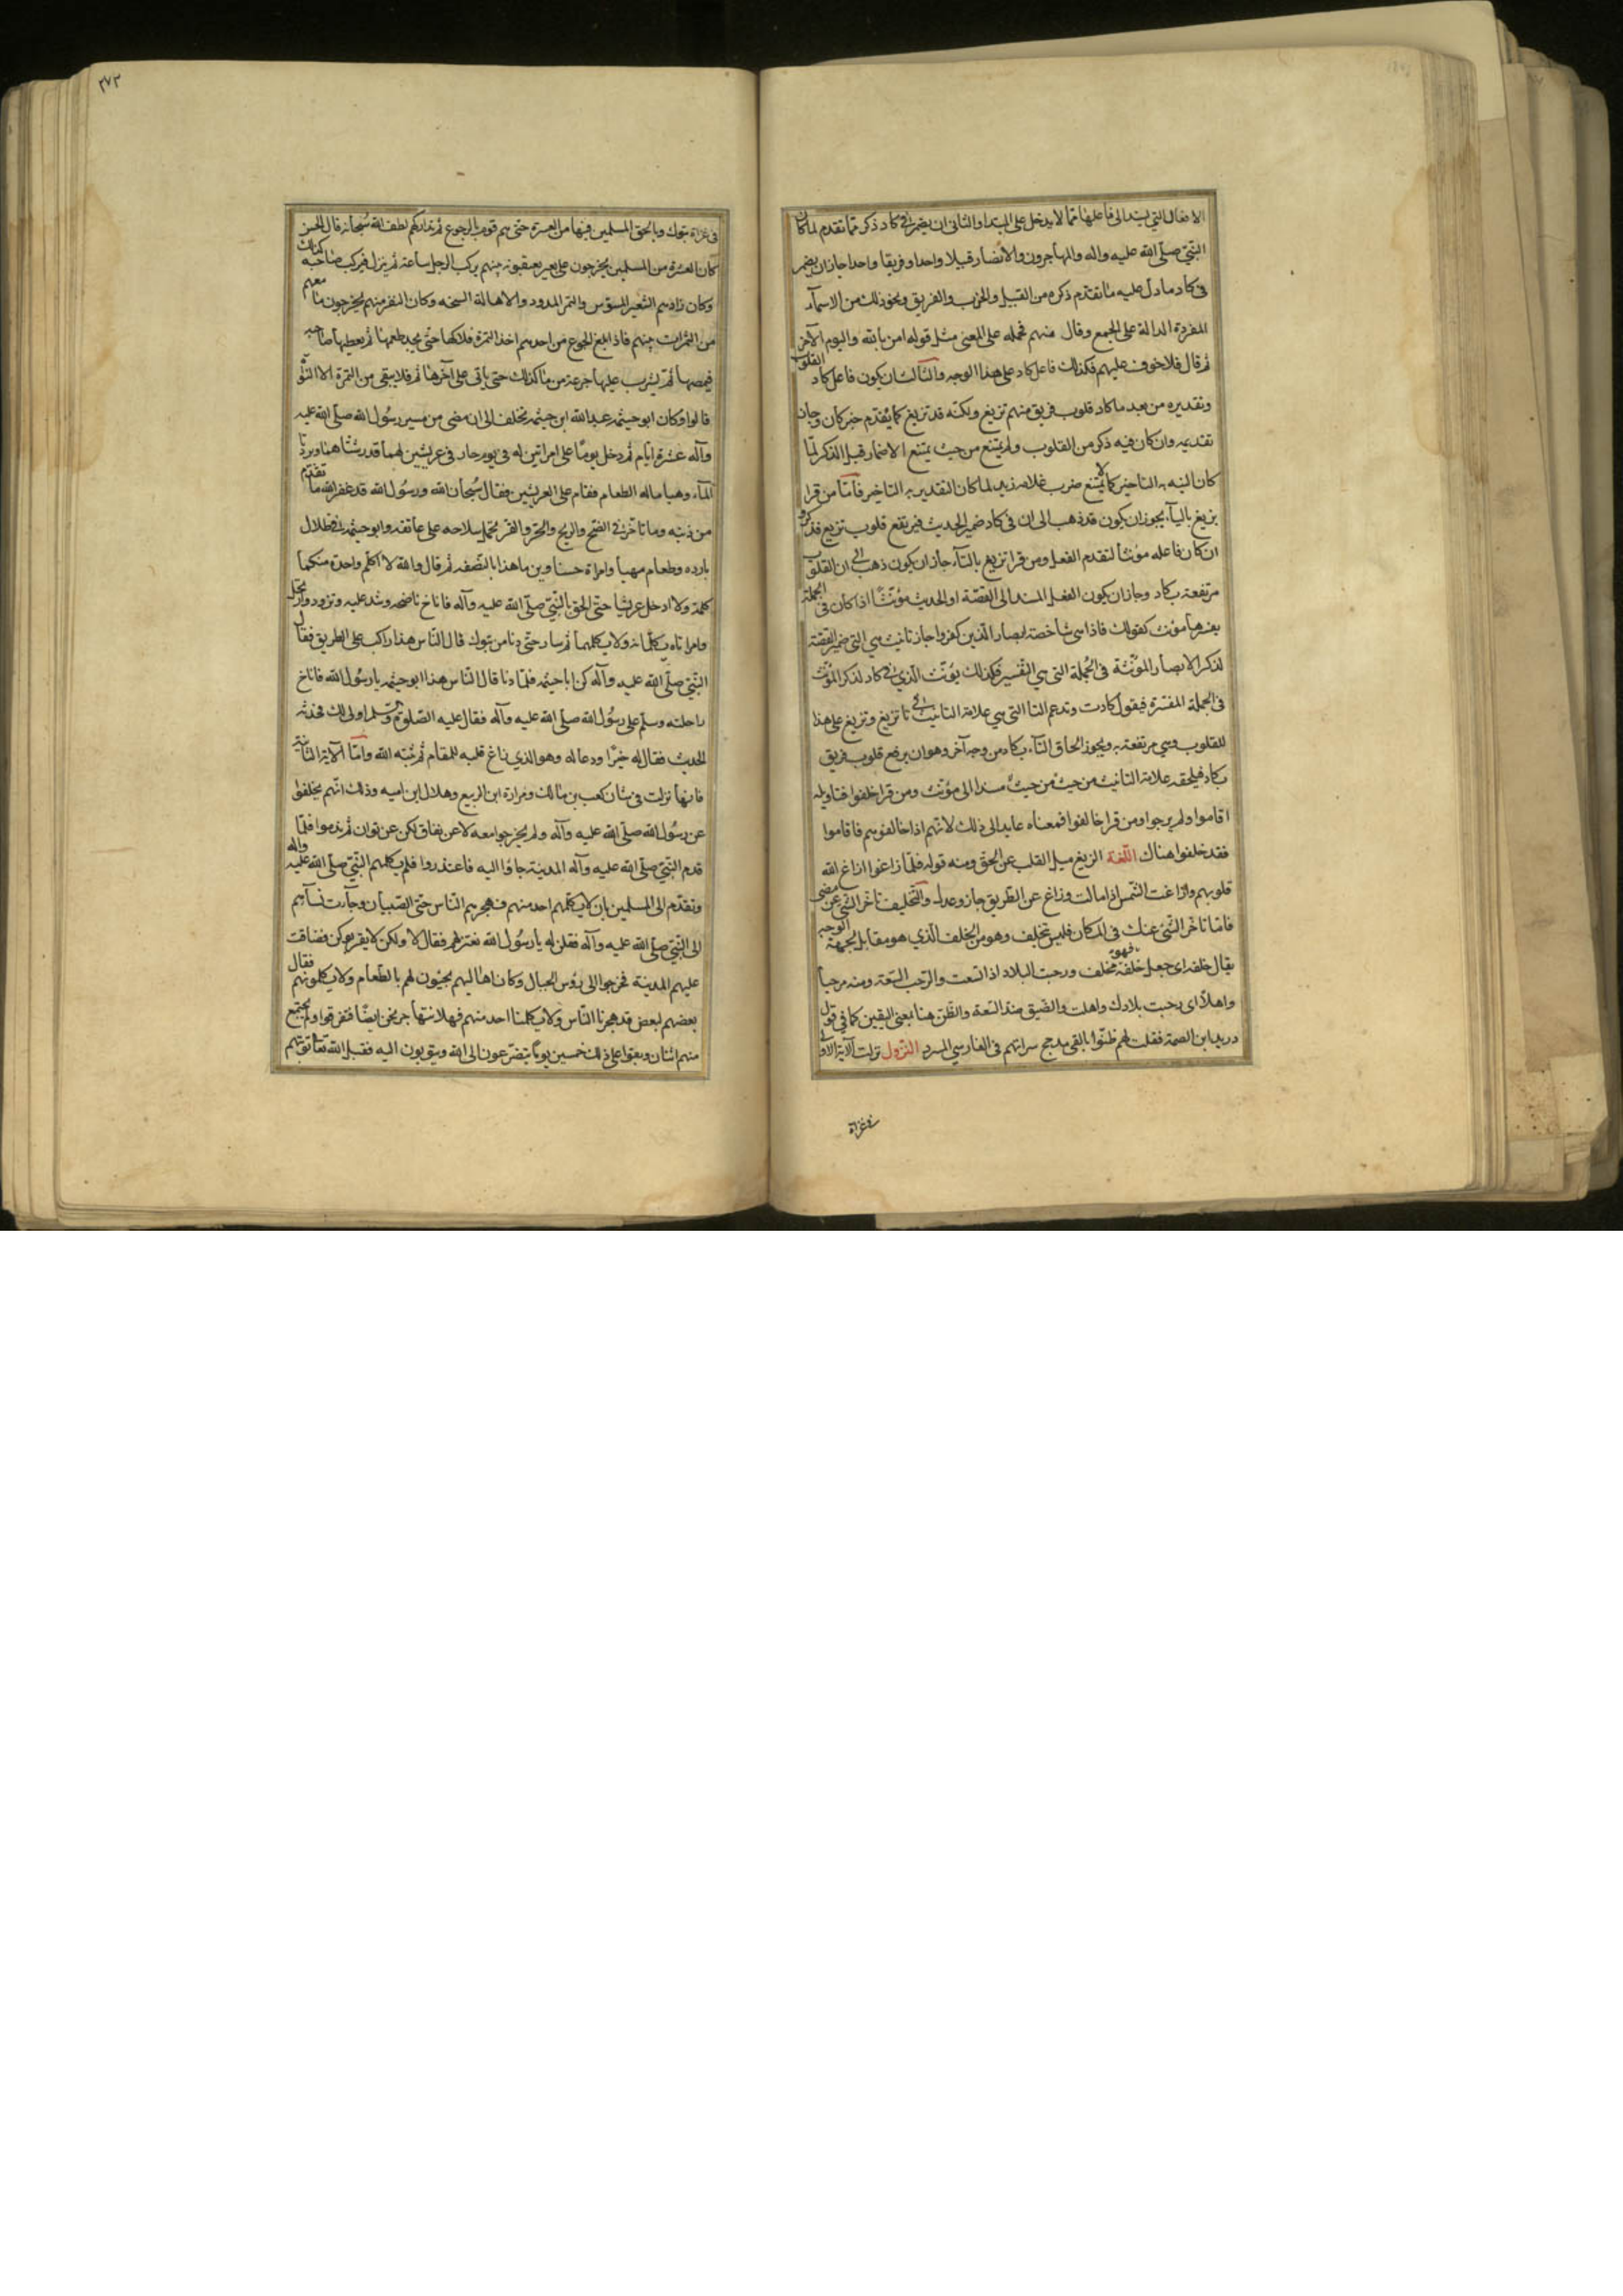 الافعال التي يسند الى فاعلها مما لا يدخل على المبتدا والثاني ان يضمر في كاد ذكر مما تقدم لما كان
النبي صلى الله عليه واله والمهاجرون والانصار قبيلا واحدا وفريقا واحدا جاز ان يضمر
في كاد ما دل عليه ما تقدم ذكره من القبيل والحزب والفريق ونحو ذلك من الاسمآء
المفردة الدالة على الجمع وقال منهم فحمله على المعنى مثل قوله امن بالله واليوم الآخر
ثم قال فلا خوف عليهم فكذلك فاعل كاد على هذا الوجه والثالث ان يكون فاعل كاد القلوب
وتقديره من بعد ما كاد قلوب فريق منهم تزيغ ولكنه قد تزيغ كما يقدم خبر كان وجاز
تقديمه وان كان فيه ذكر من القلوب ولم يمتنع من حيث يمتنع الاضمار قبل الذكر لما
كان النية به التاخير كما لا يمتنع ضرب غلامه زيد لما كان التقدير به التاخير فاما من قرا
يزيغ باليآء يجوز ان يكون قد ذهب الى ان في كاد ضمير الحديث فيرتفع قلوب بتزيغ فذكر و
ان كان فاعله مؤنثا لتقدم الفعل ومن قرا تزيغ بالتآء جاز ان يكون ذهب الى ان القلوب
مرتفعة بكاد وجاز ان يكون الفعل المسند الى القصة او الحديث مؤنثا اذا كان في الجملة
يفسرها مؤنث كقولك فاذا هي شاخصة ابصار الذين كفروا جاز تانيث هي التي ضمير القصة
لذكر الابصار المؤنثة في الجملة التي هي التفسير فكذلك يؤنث الذي في كاد لذكر المؤنث
في الجملة المفسرة فيقول كادت وتدغم التا التي هي علامة التانيث في تا تزيغ وتزيغ على هذا
للقلوب وهي مرتفعة به ويجوز الحاق التآء بكاد من وجه آخر وهو ان يرفع قلوب فريق
بكاد فيلحقه علامة التانيث من حيث من حيث مسندا الى مؤنث ومن قرا خلفوا فتاويله
اقاموا ولم يبرحوا ومن قرا خالفوا فمعناه عايد الى ذلك لانهم اذا خالفوهم فاقاموا
فقد خلفوا هناك اللغة الزيغ ميل القلب عن الحق ومنه قوله فلما زاغوا ازاغ الله
قلوبهم وزاغت الشمس اذا مالت وزاغ عن الطريق جاز وعدل والتخليف تاخر الشئ عن مضى
فاما تاخر الشئ عنك في المكان فليس بتخليف وهو من الخلف الذي هو مقابل لجهة الوجه
يقال خلفه اى جعله خلفه فهو مخلف ورحبت البلاد اذا اتسعت والرحب السعة ومنه مرحبا
واهلا اى رحبت بلادك واهلت والضيق ضد السعة والظن هنا بمعنى اليقين كما في قول
دريد ابن الصمة فقلت لهم ظنوا بالفي مدجج سراتهم في الفارسي المسرد النزول نزلت الآية الاولى
في غزاة
٢٧٣
في غزاة تبوك وما لحق المسلمين فيها من العسرة حتى هم قوم بالرجوع ثم تداركهم لطف الله سبحانه قال الحسن
كان العشرة من المسلمين يخرجون على بعير يعتقبونه بينهم يركب الرجل ساعة ثم ينزل فيركب صاحبه كذلك
وكان زادهم الشعير المسوس والتمر المدود والاهالة السخه وكان النفر منهم يخرجون ما معهم
من التمرات بينهم فاذا بلغ الجوع من احدهم اخذ التمرة فلاكها حتى يجد طعمها ثم يعطيها صاحبه
فيمصها ثم يشرب عليها جرعة من ما كذلك حتى ياتى على آخرها ثم فلا يبقى من التمرة الا النوى
قالوا وكان ابو خيثمه عبد الله ابن خيثمه تخلف الى ان مضى من مسير رسول الله صلى الله عليه
وآله عشرة ايام ثم دخل يوما على امراتين له في يوم حار في عريشين لهما قد رشتاهما وبردتا
المآء وهياتا له الطعام فقام على العريشين فقال سبحان الله ورسول الله قد غفر الله ما تقدم
من ذنبه وما تاخر في الفتح والريح والحر والقر يحمل سلاحه على عاتقه وابو خيثمه في ظلال
بارده وطعام مهيا وامراة حسناوين ما هذا بالنصفه ثم قال والله لا اكلم واحدة منكما
كلمة ولا ادخل عريشا حتى الحق بالنبي صلى الله عليه وآله فاناخ ناضحه وشد عليه وتزود وارتحل
وامراتاه يكلمانه ولا يكلمهما ثم سار حتى دنا من تبوك قال الناس هذا راكب على الطريق فقال
النبي صلى الله عليه وآله كن ابا خيثمه فلما دنا قال الناس هذا ابو خيثمه يا رسول الله فاناخ
راحلته وسلم على رسول الله صلى الله عليه وآله فقال عليه الصلوة والسلم اولى لك فحدثه
الحديث فقال له خيرا ودعا له وهو الذي زاغ قلبه للمقام ثم ثبته الله واما الآية الثانية
فانها نزلت في شان كعب بن مالك ومرارة ابن الربيع وهلال ابن اميه وذلك انهم تخلفوا
عن رسول الله صلى الله عليه وآله ولم يخرجوا معه لا عن نفاق لكن عن توان ثم ندموا فلما
قدم النبي صلى الله عليه وآله المدينة جاؤا اليه فاعتذروا فلم يكلمهم النبي صلى الله عليه واله
وتقدم الى المسلمين بان لا يكلمهم احد منهم فهجرهم الناس حتى الصبيان وجآءت نسآءهم
الى النبي صلى الله عليه وآله فقلن له يا رسول الله نعتزلهم فقال لا ولكن لا يقربوكن فضاقت
عليهم المدينة فخرجوا الى رؤس الجبال وكان اهاليهم يجيئون لهم بالطعام ولا يكلمونهم فقال
بعضهم لبعض قد هجرنا الناس ولا يكلمنا احد منهم فهلا نتهاجر نحن ايضا فتفرقوا ولم يجتمع
منهم اثنان وبقوا على ذلك خمسين يوما يتضرعون الى الله ويتوبون اليه فقبل الله تعالى توبتهم